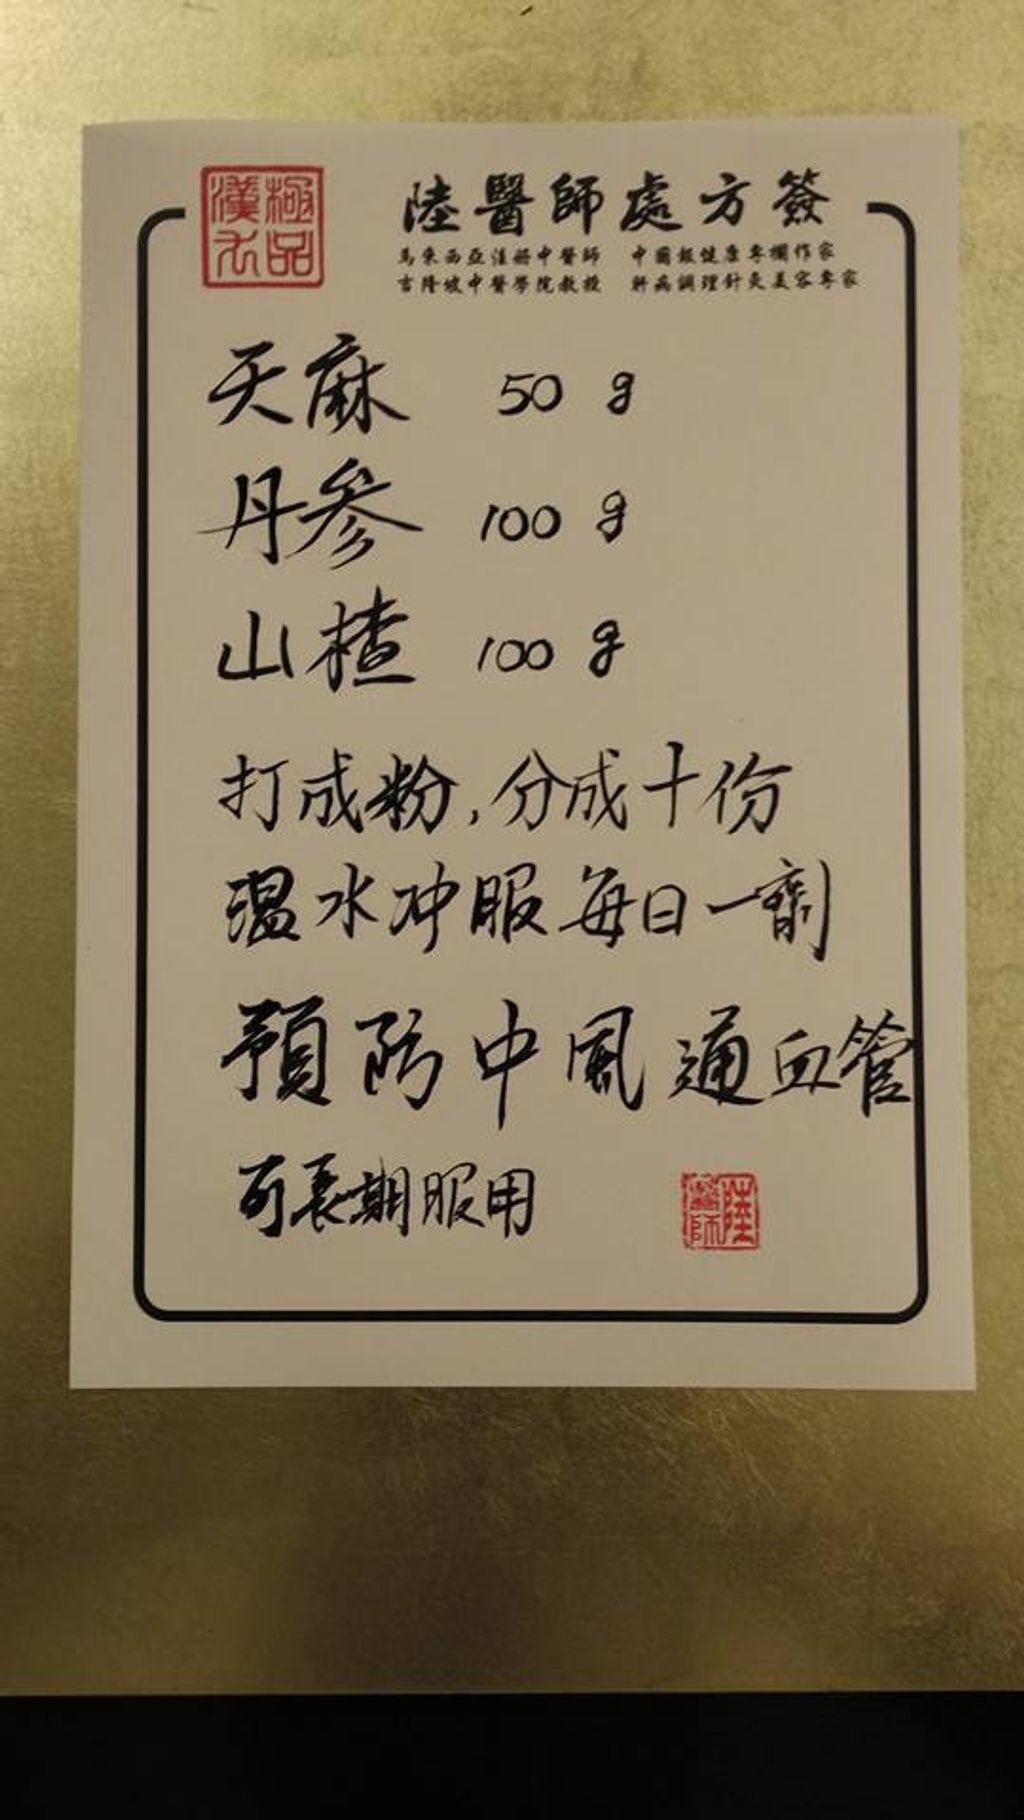 極品
漢方
陸醫師處方簽
馬來西亞註冊中醫師 中國報健康專欄作家
吉隆坡中醫學院教授 肝病調理針灸美容專家
天麻 50 g
丹參 100 g
山楂 100 g
打成粉,分成十份
溫水冲服每日一劑
預防中風通血管
可長期服用
陸
醫師